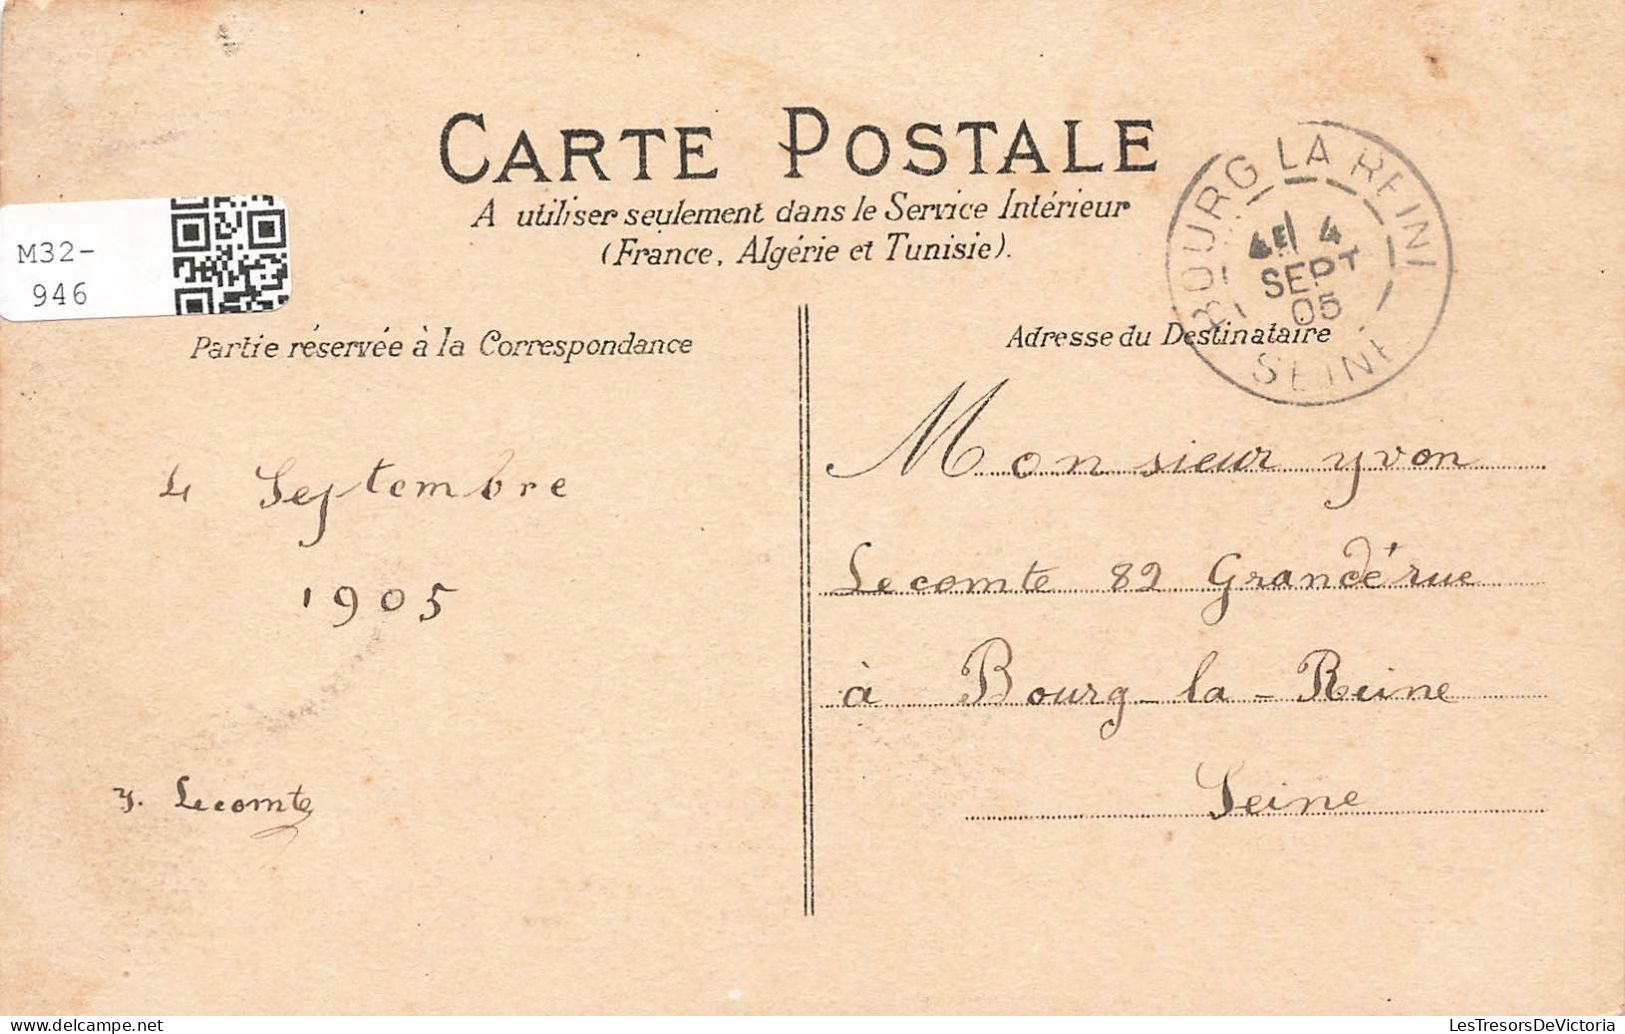 CARTE POSTALE
A utiliser seulement dans le Service Intérieur
(France, Algérie et Tunisie).
M32-
946
BOURG LA REINE
4E 4
SEPT
05
SEINE
Partie réservée à la Correspondance
Adresse du Destinataire
4 Septembre
1905
y. Lecomte
Monsieur yvon
Lecomte 82 Grande rue
à Bourg-la-Reine
Seine
LesTresorsDeVictoria